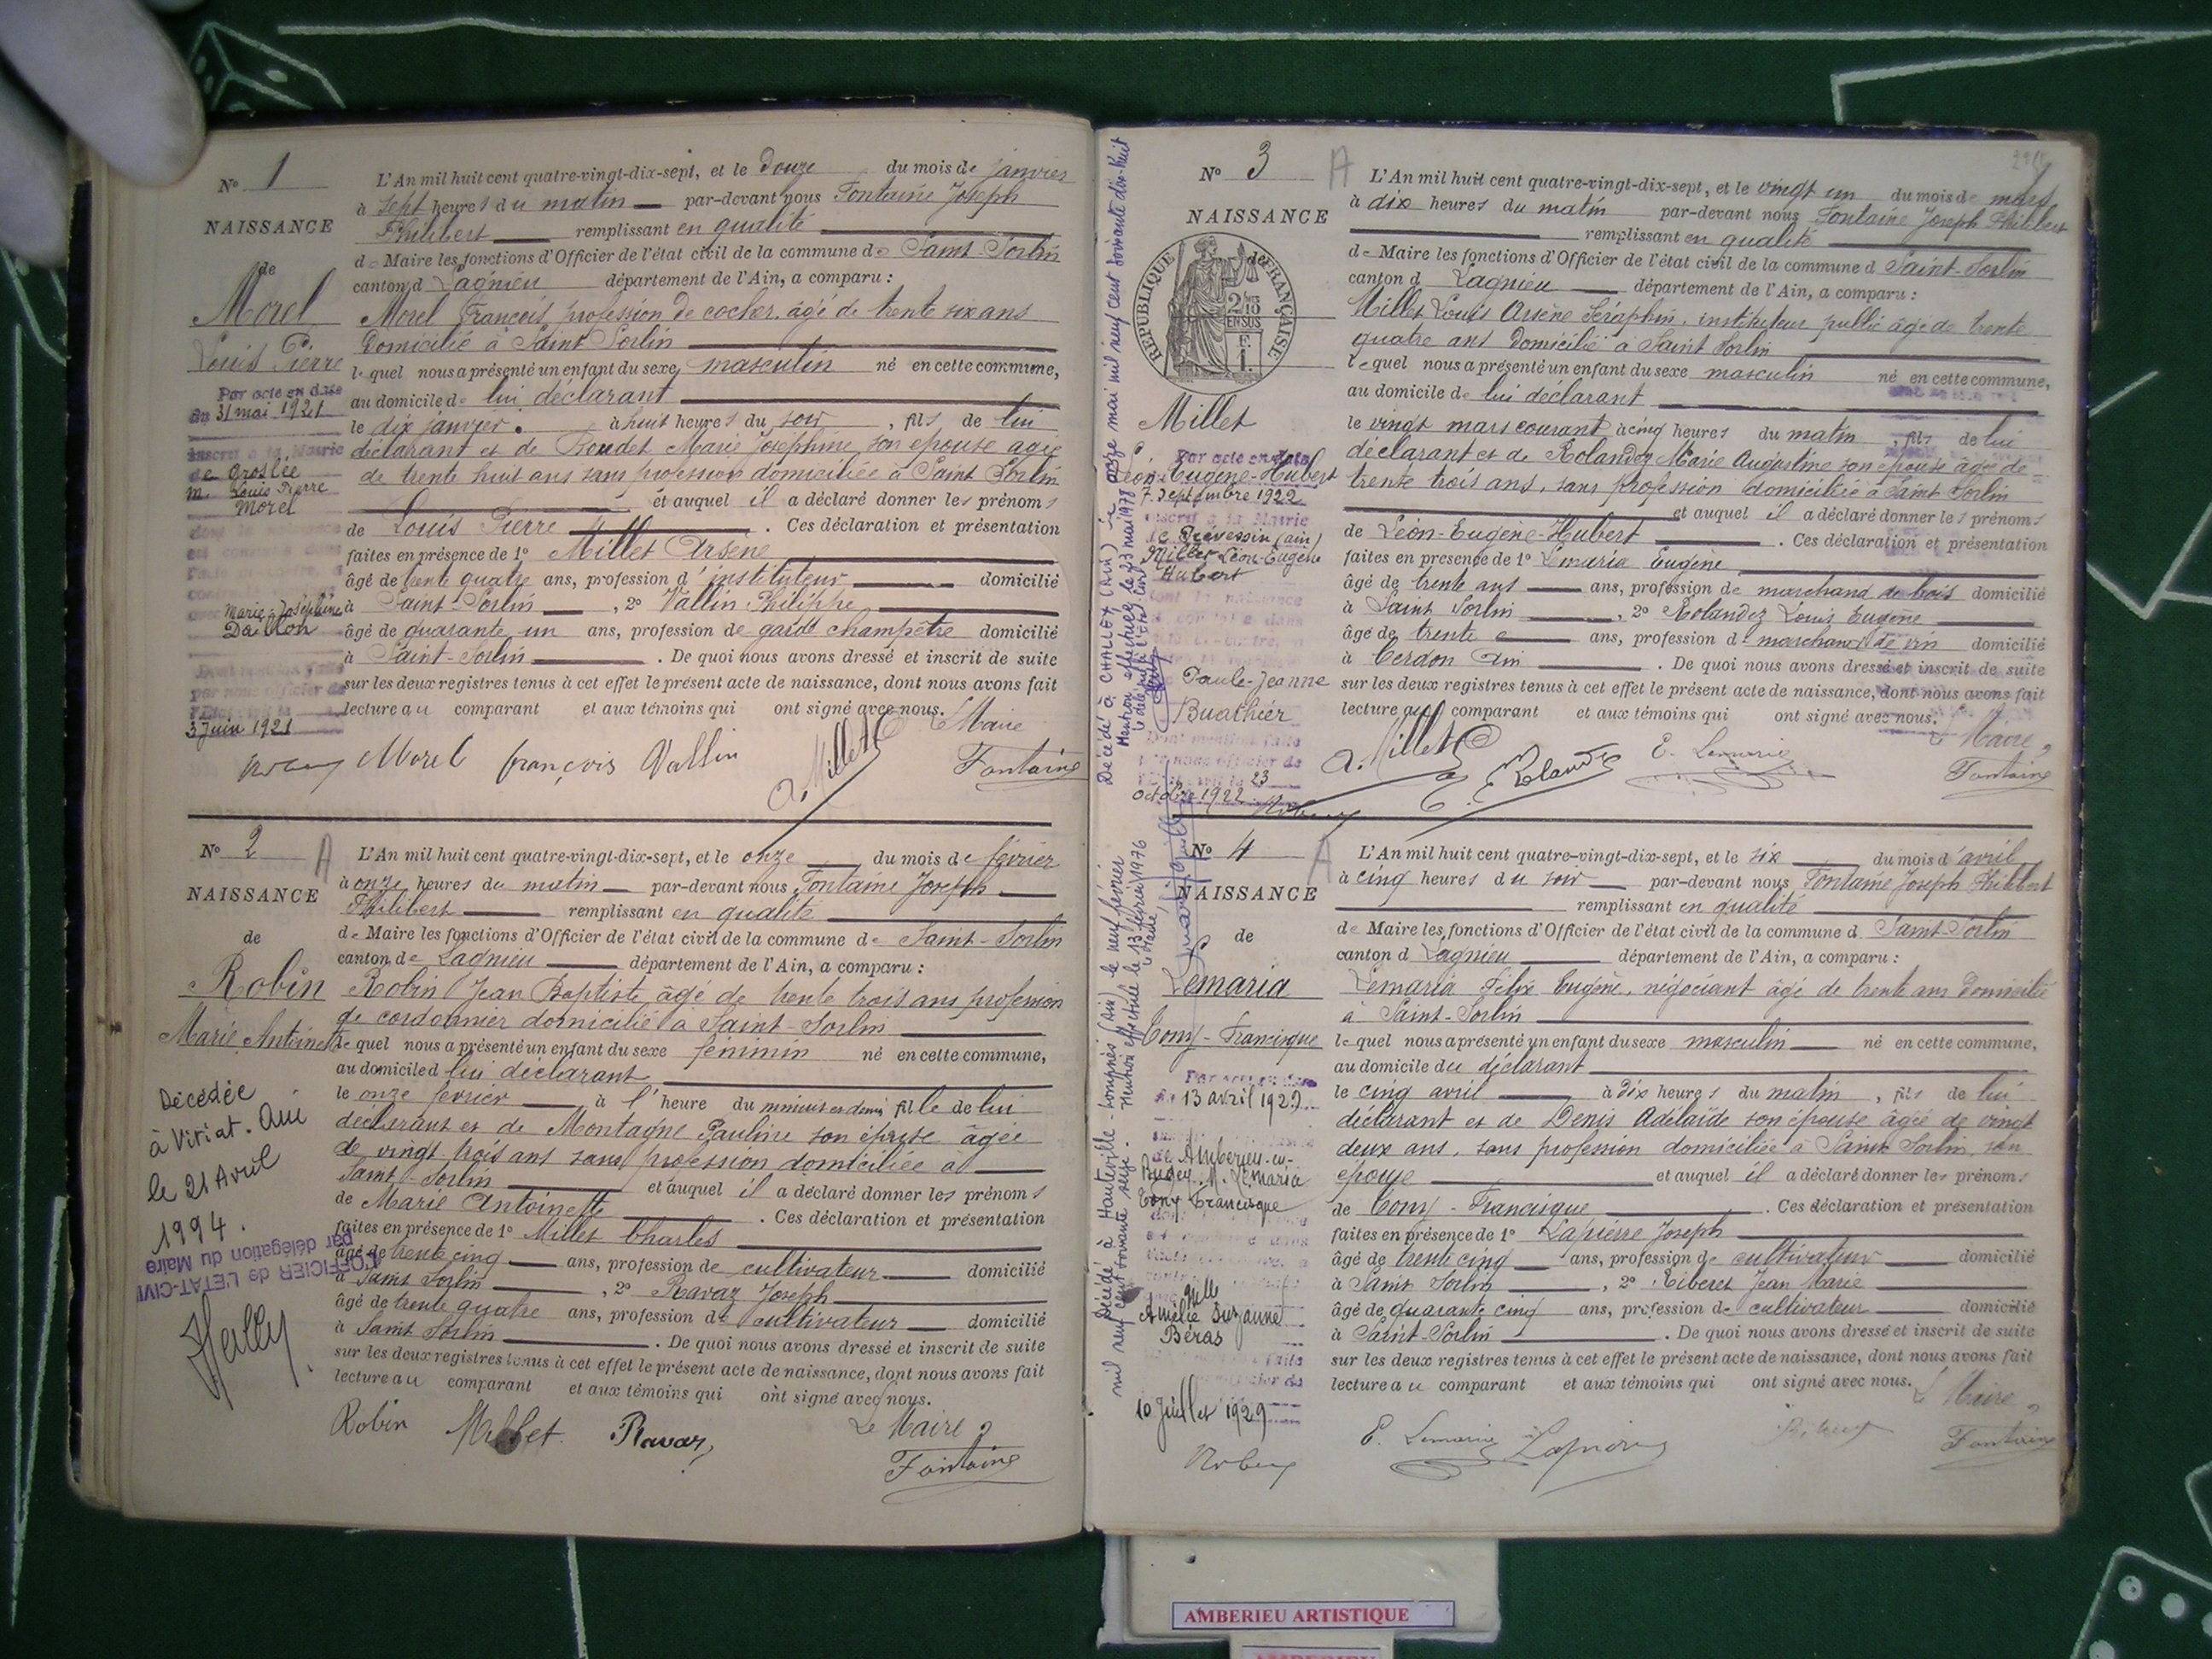 N° 1
NAISSANCE
de
Morel
Louis Pierre
Par acte en date
du 31 mai 1921
inscrit à la Mairie
de Groslée
M. Louis Pierre
Morel
Marie-Joséphine
3 Juin 1921
L'An mil huit cent quatre-vingt-dix-sept, et le douze du mois de janvier
à sept heures du matin par-devant nous Fontaine Joseph
Philibert remplissant en qualité
de Maire les fonctions d'Officier de l'état civil de la commune de Saint-Sorlin
canton d Lagnieu département de l'Ain, a comparu :
Morel François, profession de cocher, âgé de trente six ans
Domicilié à Saint Sorlin
lequel nous a présenté un enfant du sexe masculin né en cette commune,
au domicile de lui déclarant
le dix janvier à huit heures du soir, fils de lui
déclarant et de Boudet Marie Joséphine son épouse agée
de trente huit ans sans profession domiciliée à Saint Sorlin
et auquel il a déclaré donner les prénoms
de Louis Pierre . Ces déclaration et présentation
faites en présence de 1° Millet Arsène
âgé de trente quatre ans, profession d'instituteur domicilié
à Saint-Sorlin , 2° Vallin Philippe
âgé de quarante un ans, profession de garde champêtre domicilié
à Saint-Sorlin . De quoi nous avons dressé et inscrit de suite
sur les deux registres tenus à cet effet le présent acte de naissance, dont nous avons fait
lecture au comparant et aux témoins qui ont signé avec nous.
Le Maire
Morel françois Vallin A. Millet Fontaine
N° 2 A
NAISSANCE
de
Robin
Marie Antoinette
Décédée
à Viriat. Ain
le 21 Avril
1994.
L'OFFICIER de L'ETAT-CIVIL
par délégation du Maire
L'An mil huit cent quatre-vingt-dix-sept, et le onze du mois de février
à onze heures du matin par-devant nous Fontaine Joseph
Philibert remplissant en qualité
de Maire les fonctions d'Officier de l'état civil de la commune de Saint-Sorlin
canton de Lagnieu département de l'Ain, a comparu :
Robin Jean Baptiste, âgé de trente trois ans profession
de cordonnier domicilié à Saint-Sorlin
lequel nous a présenté un enfant du sexe féminin né en cette commune,
au domicile d lui déclarant
le onze février à l'heure du minuit et demi fille de lui
déclarant et de Montagne Pauline son épouse âgée
de vingt trois ans sans profession domiciliée à
Saint-Sorlin et auquel il a déclaré donner les prénoms
de Marie Antoinette . Ces déclaration et présentation
faites en présence de 1° Millet Charles
âgé de trente cinq ans, profession de cultivateur domicilié
à Saint Sorlin , 2° Ravaz Joseph
âgé de trente quatre ans, profession de cultivateur domicilié
à Saint Sorlin . De quoi nous avons dressé et inscrit de suite
sur les deux registres tenus à cet effet le présent acte de naissance, dont nous avons fait
lecture au comparant et aux témoins qui ont signé avec nous.
Robin Millet Ravaz Le Maire
Fontaine
N° 3 A
NAISSANCE
de
RÉPUBLIQUE FRANÇAISE
2/10
EN SUS
Millet
Léon-Eugène-Hubert
Par acte en date
7 Septembre 1922
inscrit à la Mairie
de Prévessin (ain)
Millet Léon-Eugène
Hubert
Paule-Jeanne
Buathier
23
octobre 1922
Décédé à CHALLEX (Ain) le onze mai mil neuf cent soixante dix-huit
Mention effectuée le 23 mai 1978
L'An mil huit cent quatre-vingt-dix-sept, et le vingt un du mois de mars
à dix heures du matin par-devant nous Fontaine Joseph Philibert
remplissant en qualité
de Maire les fonctions d'Officier de l'état civil de la commune d Saint-Sorlin
canton d Lagnieu département de l'Ain, a comparu :
Millet Louis Arsène Séraphin, instituteur public âgé de trente
quatre ans Domicilié à Saint Sorlin
lequel nous a présenté un enfant du sexe masculin né en cette commune,
au domicile de lui déclarant
le vingt mars courant à cinq heures du matin, fils de lui
déclarant et de Rolandez Marie Augustine son épouse âgée de
trente trois ans, sans profession domiciliée à Saint Sorlin
et auquel il a déclaré donner les prénoms
de Léon-Eugène-Hubert . Ces déclaration et présentation
faites en présence de 1° Lemaria Eugène
âgé de trente ans ans, profession de marchand de bois domicilié
à Saint Sorlin , 2° Rolandez Louis Eugène
âgé de trente ans, profession de marchand de vin domicilié
à Cerdon Ain . De quoi nous avons dressé et inscrit de suite
sur les deux registres tenus à cet effet le présent acte de naissance, dont nous avons fait
lecture au comparant et aux témoins qui ont signé avec nous.
Le Maire
A. Millet E. Rolandez E. Lemaria Fontaine
N° 4 A
NAISSANCE
de
Lemaria
Tony-Francisque
13 avril 1929
de Ambérieu-en-
Bugey M. Lemaria
Tony Francisque
Melle
Amélie Suzanne
Béras
10 Juillet 1929
Décédé à Hauteville-Lompnes (Ain) le neuf février
mil neuf cent soixante seize. Mention effectuée le 13 février 1976
L'An mil huit cent quatre-vingt-dix-sept, et le six du mois d'avril
à cinq heures du soir par-devant nous Fontaine Joseph Philibert
remplissant en qualité
de Maire les fonctions d'Officier de l'état civil de la commune d Saint-Sorlin
canton d Lagnieu département de l'Ain, a comparu :
Lemaria Félix Eugène, négociant âgé de trente ans Domicilié
à Saint-Sorlin
lequel nous a présenté un enfant du sexe masculin né en cette commune,
au domicile du déclarant
le cinq avril à dix heures du matin, fils de lui
déclarant et de Denis Adélaïde son épouse âgée de vingt
deux ans, sans profession domiciliée à Saint Sorlin, son
épouse et auquel il a déclaré donner les prénoms
de Tony-Francisque . Ces déclaration et présentation
faites en présence de 1° Lapierre Joseph
âgé de trente cinq ans, profession de cultivateur domicilié
à Saint Sorlin , 2° Riberet Jean Marie
âgé de quarante cinq ans, profession de cultivateur domicilié
à Saint-Sorlin . De quoi nous avons dressé et inscrit de suite
sur les deux registres tenus à cet effet le présent acte de naissance, dont nous avons fait
lecture au comparant et aux témoins qui ont signé avec nous.
Le Maire
E. Lemaria Lapierre Fontaine
AMBERIEU ARTISTIQUE
AMBERIEU